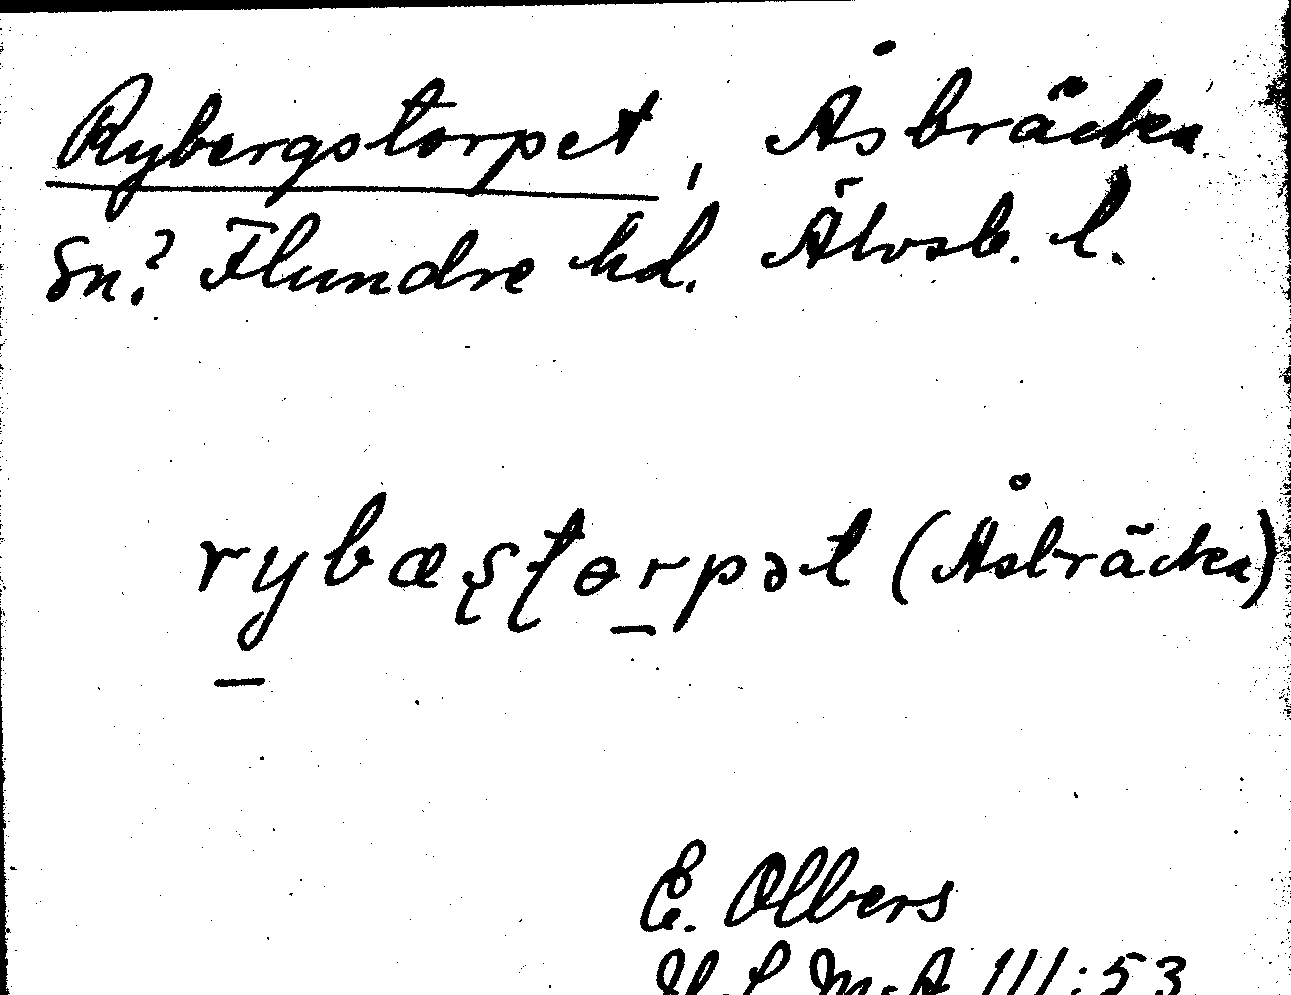 Rybergstorpet, Åsbräcka
Sn? Flundre hd. Älvsb. l.
rybæʂʈɵrpət (Åsbräcka)
E. Olbers
III:53